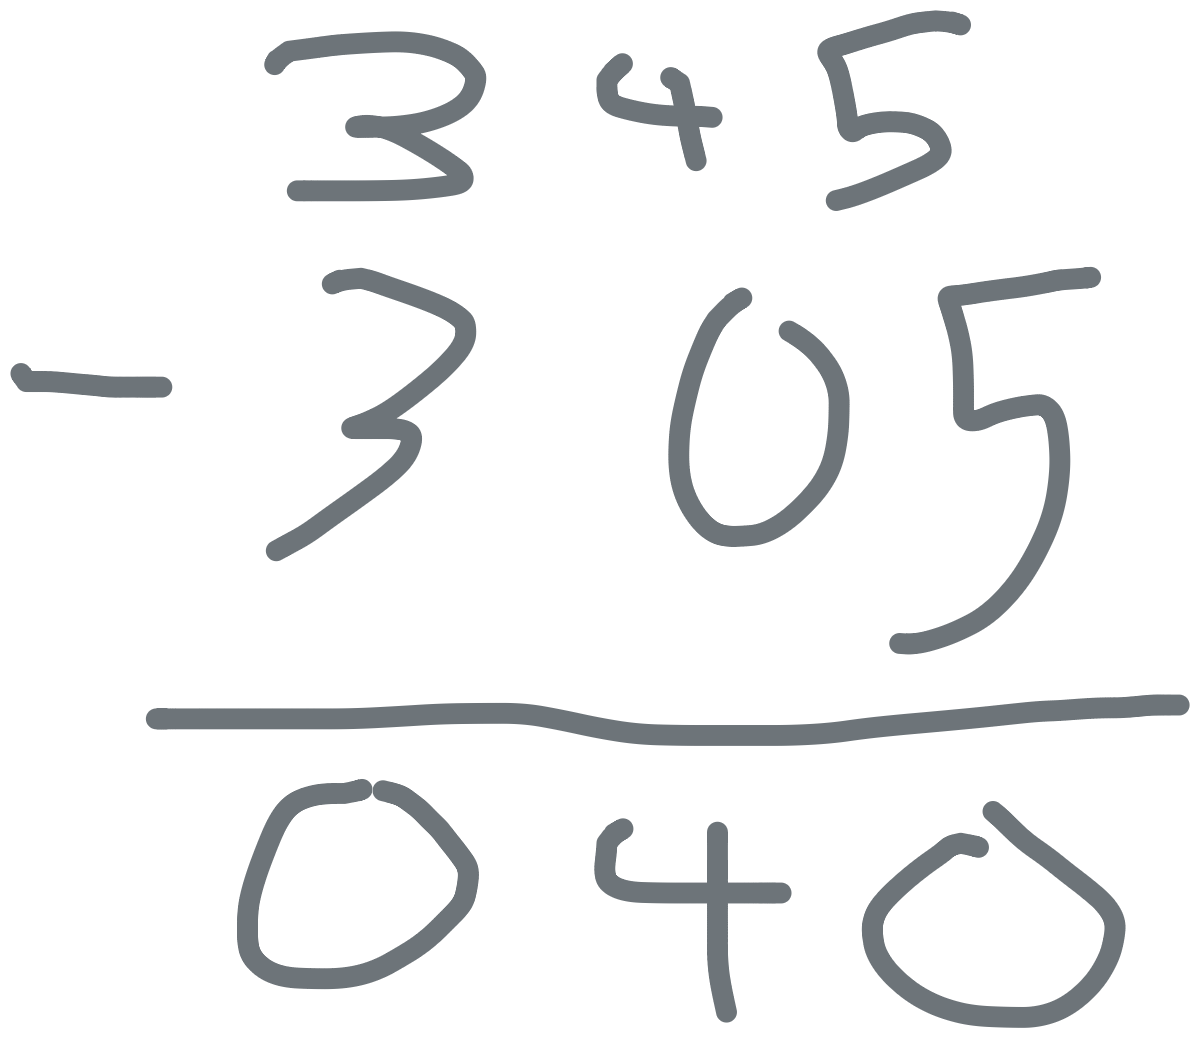 345
- 305
040